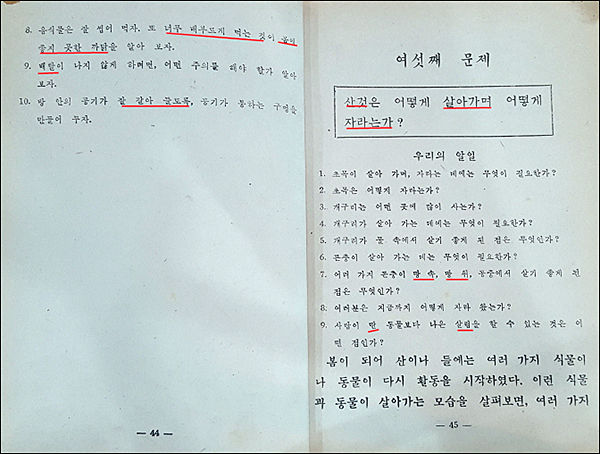 8. 음식물은 잘 씹어 먹자. 또 너무 배부르게 먹는 것이 몸에
좋지 못한 까닭을 알아 보자.
9. 배탈이 나지 않게 하려면, 어떤 주의를 해야 할가 알아
보자.
10. 방 안의 공기가 잘 갈아 들도록, 공기가 통하는 구멍을
만들어 두자.
— 44 —
여섯째 문제
산것은 어떻게 살아가며 어떻게
자라는가?
우리의 알일
1. 초목이 살아 가며, 자라는 데에는 무엇이 필요한가?
2. 초목은 어떻게 자라는가?
3. 개구리는 어떤 곳에 많이 사는가?
4. 개구리가 살아 가는 데에는 무엇이 필요한가?
5. 개구리가 물 속에서 살기 좋게 된 점은 무엇인가?
6. 곤충이 살아 가는 데는 무엇이 필요한가?
7. 여러 가지 곤충이 땅 속, 땅 위, 공중에서 살기 좋게 된
점은 무엇인가?
8. 여러분은 지금까지 어떻게 자라 왔는가?
9. 사람이 딴 동물보다 나은 살림을 할 수 있는 것은 어
떤 점인가?
봄이 되어 산이나 들에는 여러 가지 식물이
나 동물이 다시 활동을 시작하였다. 이런 식물
과 동물이 살아가는 모습을 살펴보면, 여러 가지
— 45 —